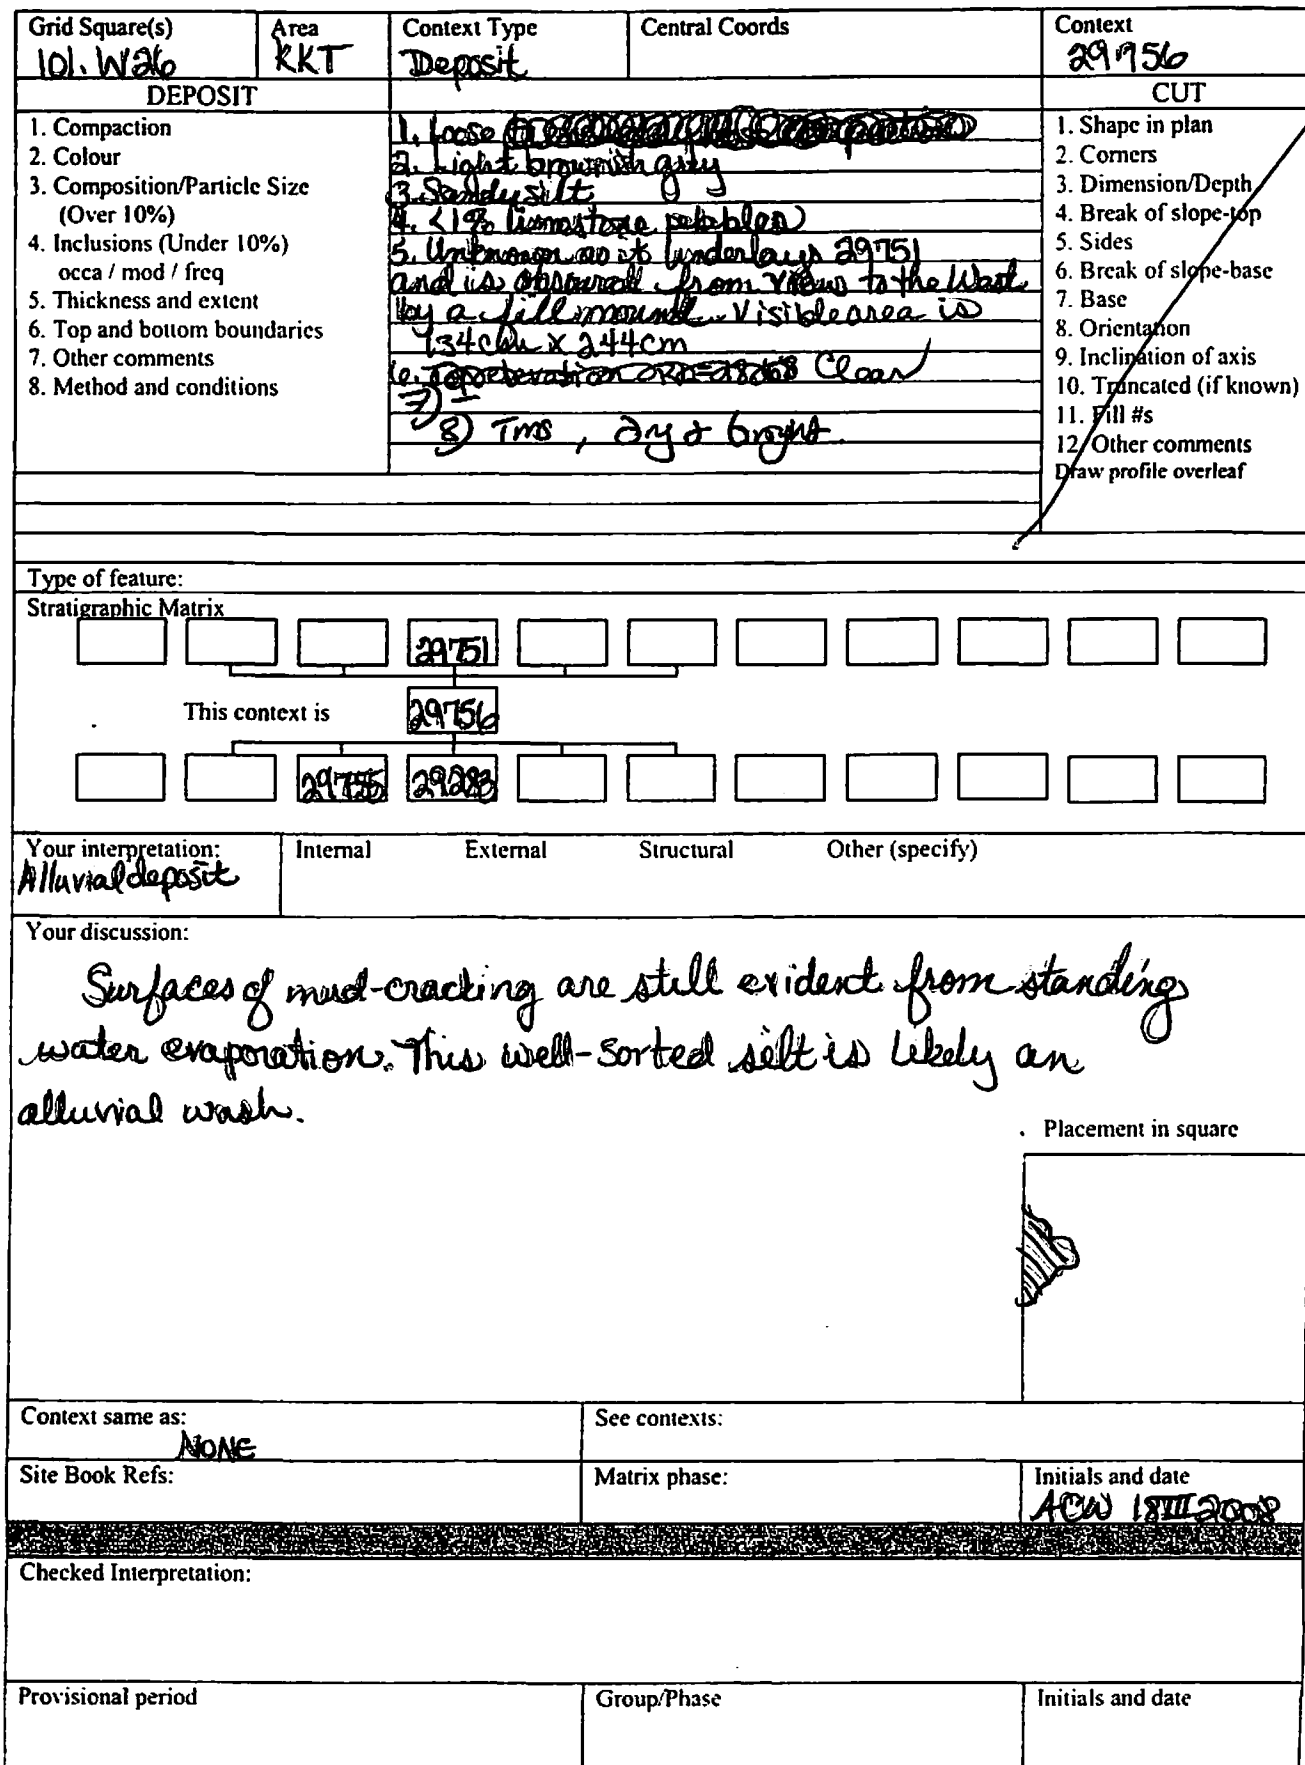 Grid Square(s) Area Context Type Central Coords Context
101.W26 KKT Deposit 29756
DEPOSIT CUT
1. Compaction
2. Colour
3. Composition/Particle Size
(Over 10%)
4. Inclusions (Under 10%)
occa / mod / freq
5. Thickness and extent
6. Top and bottom boundaries
7. Other comments
8. Method and conditions
1. Loose
2. Light brownish grey
3. Sandy silt
4. <1% limestone pebbles
5. Unknown as it underlays 29751
and is obscured from view to the West
by a fill mound. Visible area is
134cm x 244cm
6. Clear
7)
8) Tms, dry & bright
1. Shape in plan
2. Corners
3. Dimension/Depth
4. Break of slope-top
5. Sides
6. Break of slope-base
7. Base
8. Orientation
9. Inclination of axis
10. Truncated (if known)
11. Fill #s
12. Other comments
Draw profile overleaf
Type of feature:
Stratigraphic Matrix
29751
This context is 29756
29755 29283
Your interpretation: Internal External Structural Other (specify)
Alluvial deposit
Your discussion:
Surfaces of mud-cracking are still evident from standing
water evaporation. This well-sorted silt is likely an
alluvial wash.
Placement in square
Context same as: See contexts:
NONE
Site Book Refs: Matrix phase: Initials and date
ACW 18III2008
Checked Interpretation:
Provisional period Group/Phase Initials and date